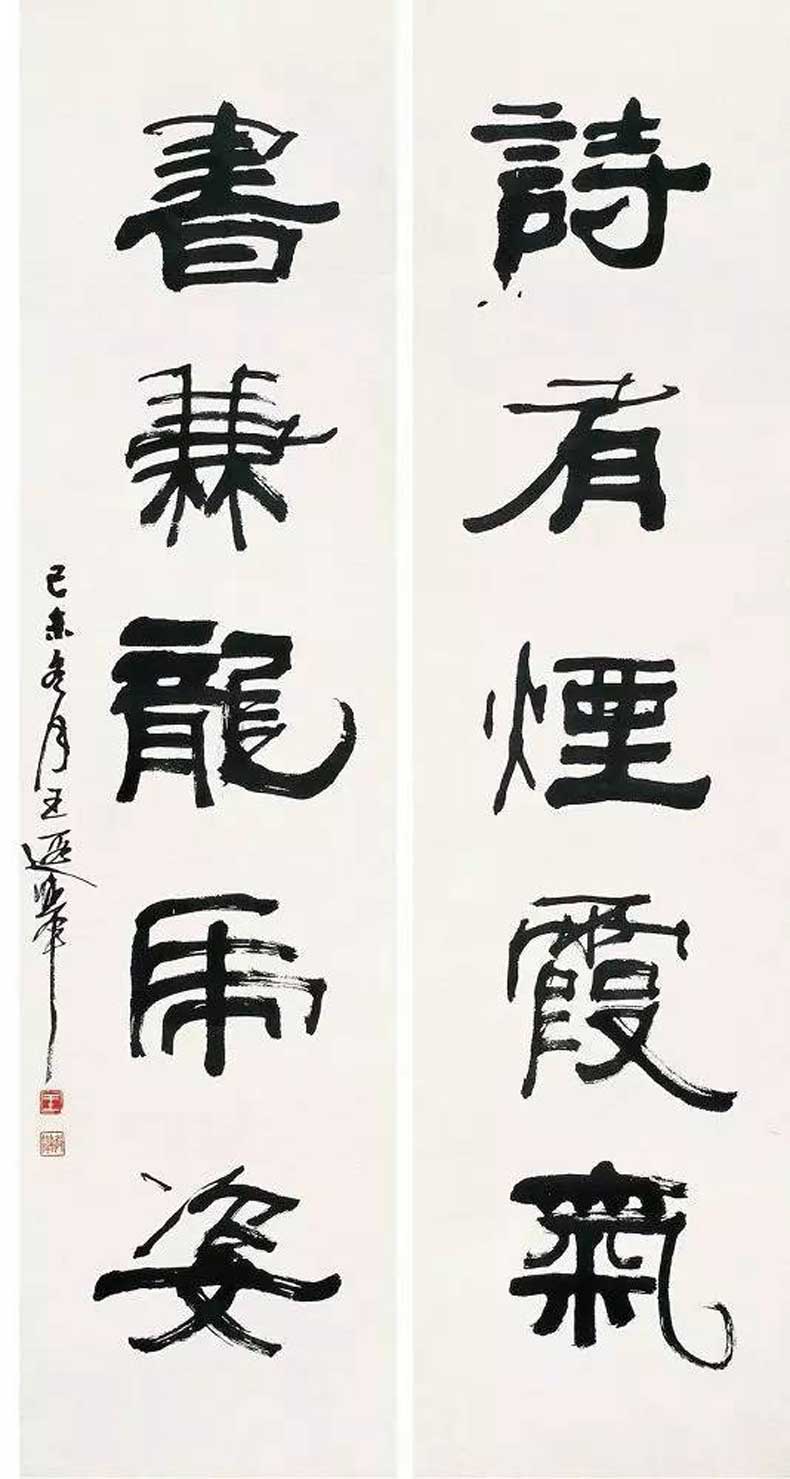 詩有煙霞氣
書兼龍虎姿
己未冬月王遐舉